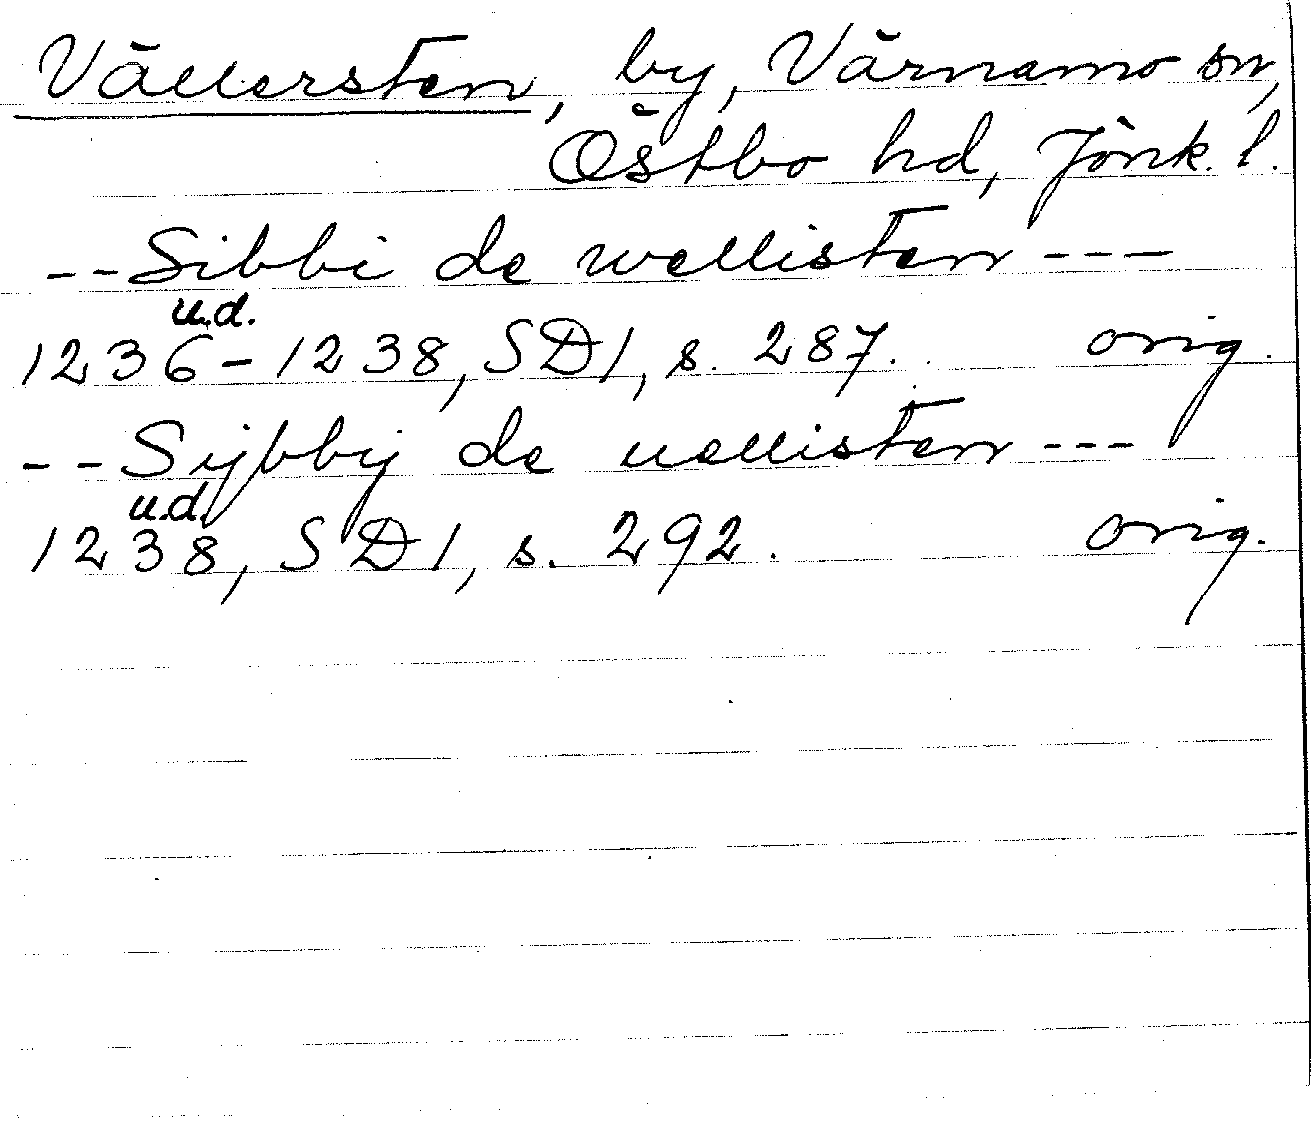 Vällersten, by, Värnamo sn,
Östbo hd, Jönk. l.
--Sibbi de wellisten---
u.d.
1236-1238, SD1, s. 287. orig.
--Sijbbij de uellisten---
u.d.
1238, SD1, s. 292. orig.